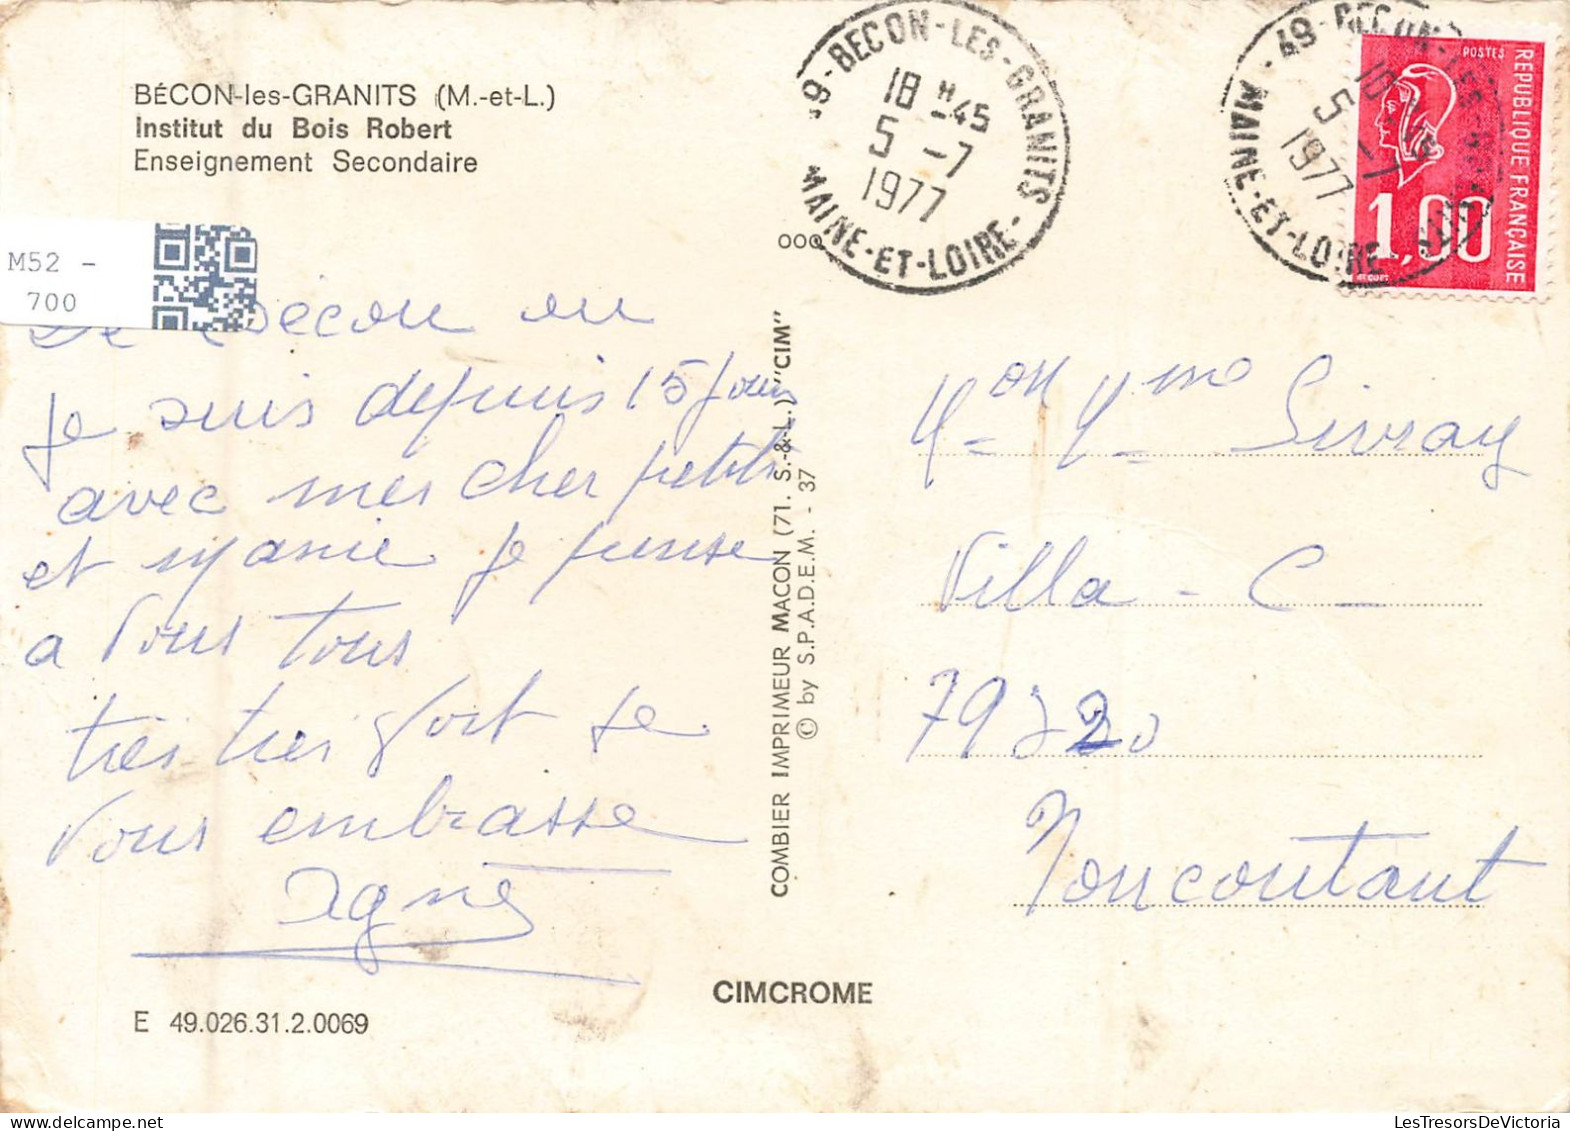 BÉCON-les-GRANITS (M.-et-L.)
Institut du Bois Robert
Enseignement Secondaire
M52 -
700
De Bécon ou
Je suis depuis 15 jours
avec mes cher petits
et Marie je pense
a Vous tous
très très fort je
Vous embrasse
Agnès
E 49.026.31.2.0069
COMBIER IMPRIMEUR MACON (71. S.-&-L.) "CIM"
© by S.P.A.D.E.M. - 37
CIMCROME
49-BECON-LES-GRANITS
18 H 45
5 -7
1977
MAINE-ET-LOIRE
49-BECON-LES-GRANITS
5 -7
1977
MAINE-ET-LOIRE
POSTES
REPUBLIQUE FRANÇAISE
1,00
Mon Mme Sivray
Villa - C -
79220
Moncoutant
LesTresorsDeVictoria.com